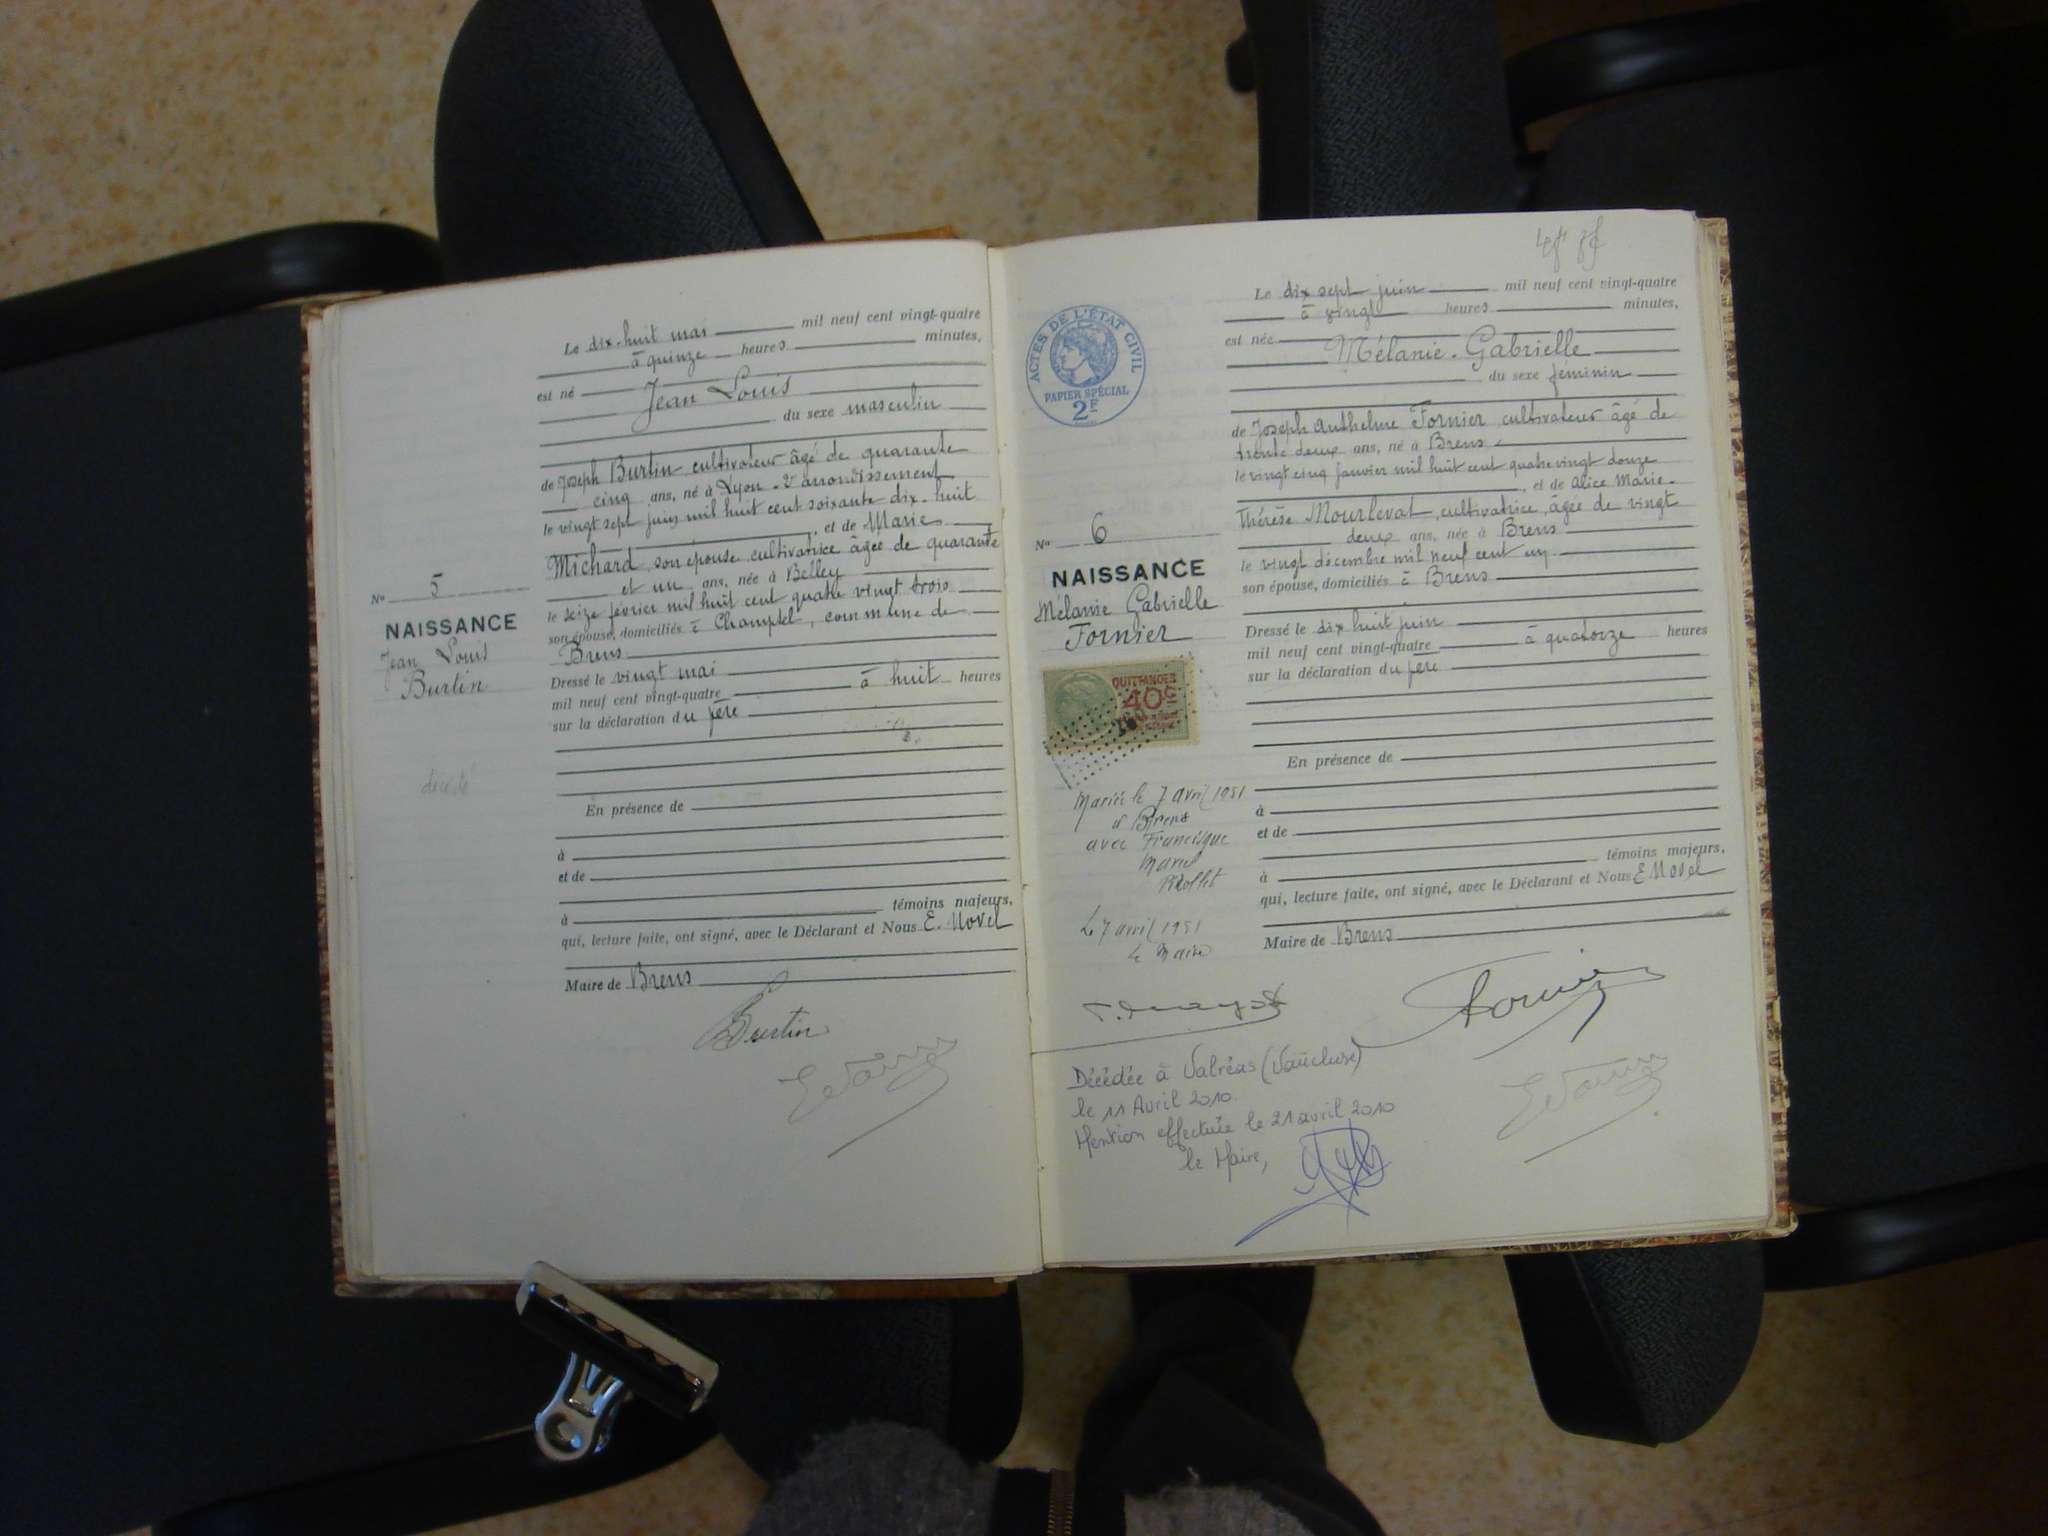 Le dix-huit mai mil neuf cent vingt-quatre
à quinze heures minutes,
est né
Jean Louis
du sexe masculin
de Joseph Burtin cultivateur âgé de quarante
cinq ans, né à Lyon. 2e arrondissement
le vingt sept juin mil huit cent soixante dix-huit
, et de Marie
Michard, son épouse, cultivatrice âgée de quarante
et un ans, née à Belley
le seize février mil huit cent quatre vingt trois
son épouse, domiciliés à Champtel, commune de
Brens
Dressé le vingt mai
mil neuf cent vingt-quatre à huit heures
sur la déclaration du père
En présence de
à
et de
à témoins majeurs,
qui, lecture faite, ont signé, avec le Déclarant et Nous E. Novel
Maire de Brens
Burtin
No 5
NAISSANCE
Jean Louis
Burtin
décédé
Le dix sept juin mil neuf cent vingt-quatre
à vingt heures minutes,
est née
Mélanie-Gabrielle
du sexe féminin
de Joseph Anthelme Fornier, cultivateur âgé de
trente deux ans, né à Brens
le vingt cinq janvier mil huit cent quatre vingt douze
, et de Alice Marie-
Thérèse Mourlevat, cultivatrice, âgée de vingt
deux ans, née à Brens
le vingt décembre mil neuf cent un
son épouse, domiciliés à Brens
Dressé le dix huit juin
mil neuf cent vingt-quatre à quatorze heures
sur la déclaration du père
En présence de
à
et de
à témoins majeurs,
qui, lecture faite, ont signé, avec le Déclarant et Nous E Novel
Maire de Brens
Fornier
ACTES DE L'ÉTAT CIVIL
PAPIER SPÉCIAL
2F
No 6
NAISSANCE
Mélanie Gabrielle
Fornier
QUITTANCES
40c
Mariée le 7 avril 1951
à Brens
avec Francisque
Marie
Le 7 avril 1951
Le Maire
Décédée à Valréas (Vaucluse)
le 11 Avril 2010.
Mention effectuée le 21 avril 2010
le Maire,